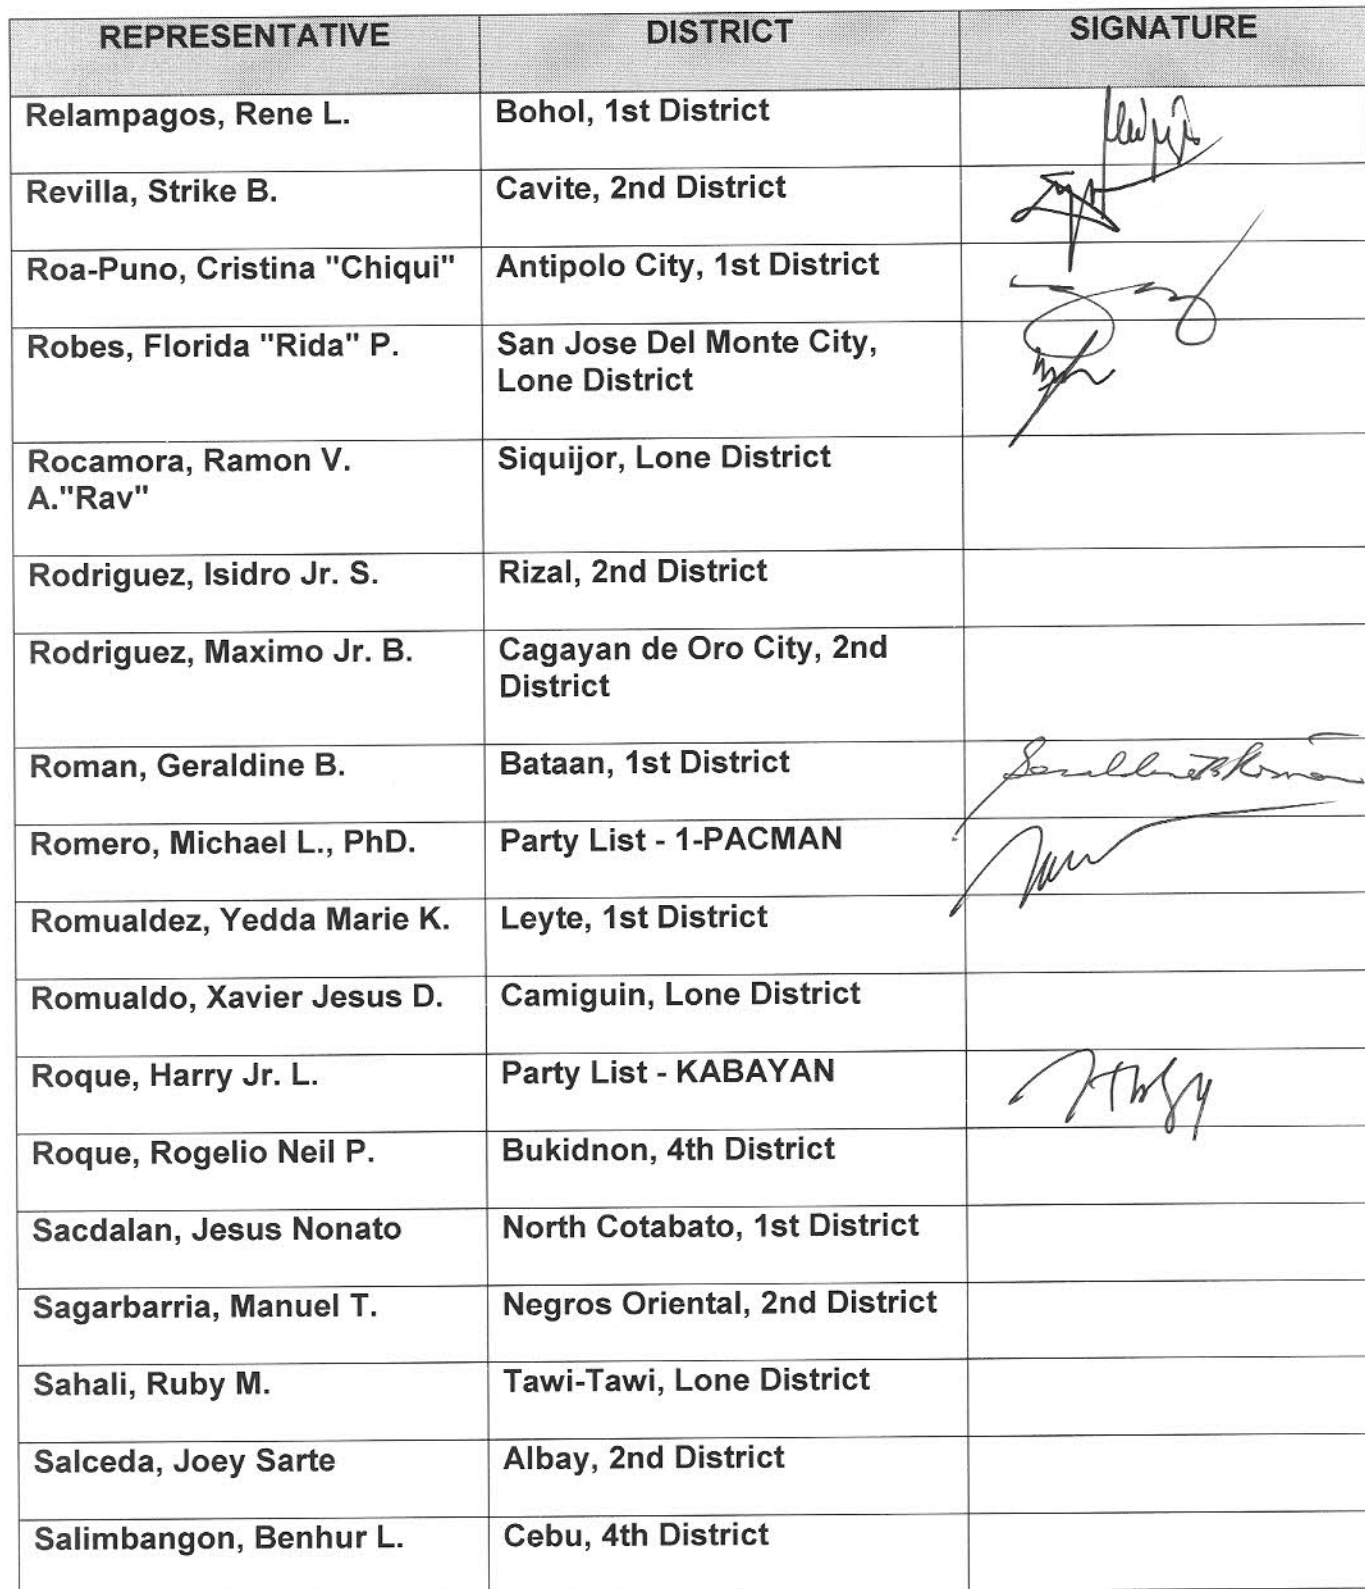 REPRESENTATIVE DISTRICT SIGNATURE
Relampagos, Rene L. Bohol, 1st District
Revilla, Strike B. Cavite, 2nd District
Roa-Puno, Cristina "Chiqui" Antipolo City, 1st District
Robes, Florida "Rida" P. San Jose Del Monte City,
Lone District
Rocamora, Ramon V. Siquijor, Lone District
A."Rav"
Rodriguez, Isidro Jr. S. Rizal, 2nd District
Rodriguez, Maximo Jr. B. Cagayan de Oro City, 2nd
District
Roman, Geraldine B. Bataan, 1st District
Romero, Michael L., PhD. Party List - 1-PACMAN
Romualdez, Yedda Marie K. Leyte, 1st District
Romualdo, Xavier Jesus D. Camiguin, Lone District
Roque, Harry Jr. L. Party List - KABAYAN
Roque, Rogelio Neil P. Bukidnon, 4th District
Sacdalan, Jesus Nonato North Cotabato, 1st District
Sagarbarria, Manuel T. Negros Oriental, 2nd District
Sahali, Ruby M. Tawi-Tawi, Lone District
Salceda, Joey Sarte Albay, 2nd District
Salimbangon, Benhur L. Cebu, 4th District